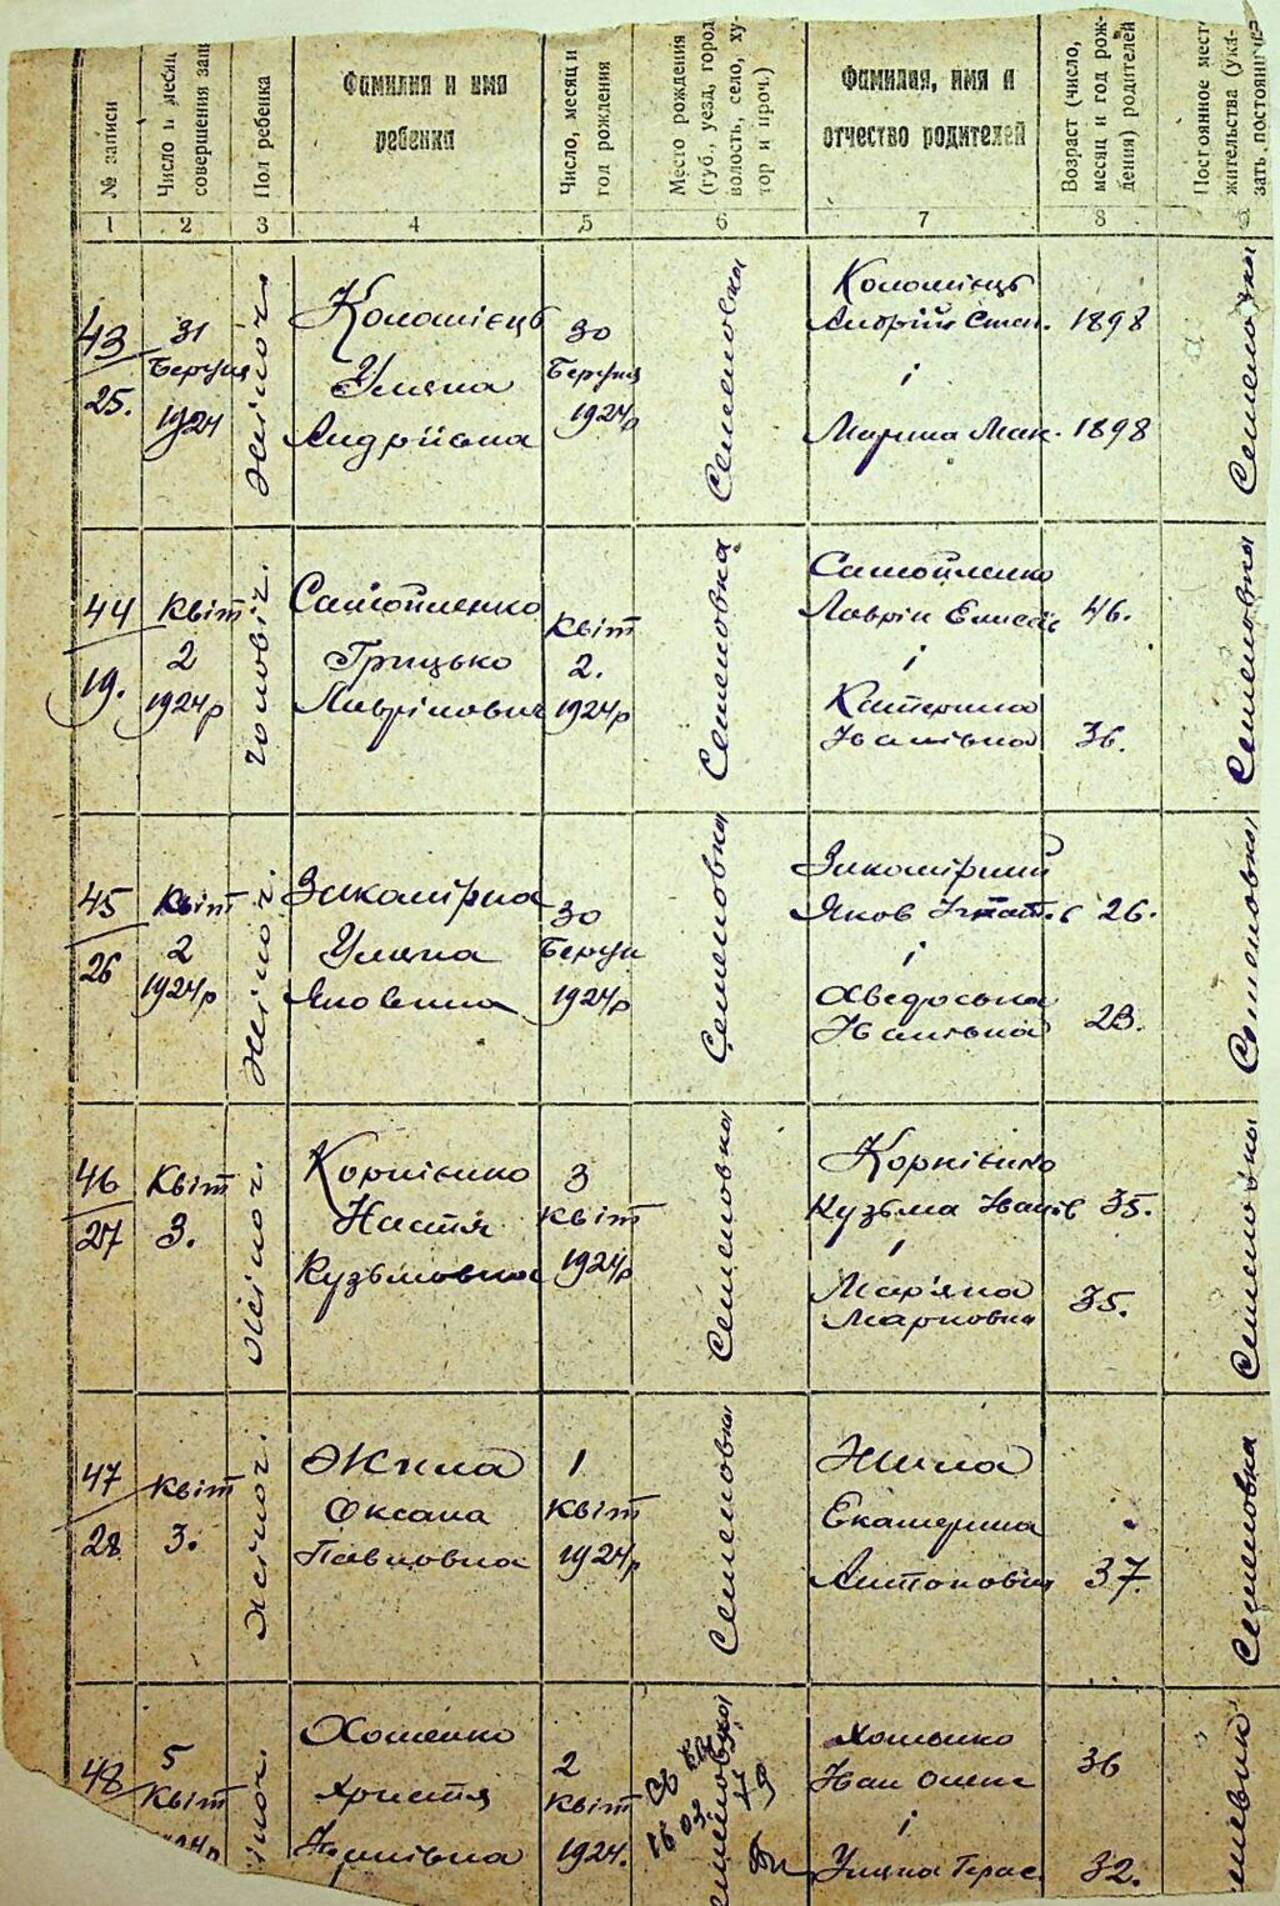 № записи
Число и месяц
совершения зап
Пол ребенка
Фамилия и имя
ребенка
Число, месяц и
год рождения
Место рождения
(губ., уезд, город,
волость, село, ху-
тор и проч.)
Фамилия, имя и
отчество родителей
Возраст (число,
месяц и год рож-
дения) родителей
Постоянное мест
жительства (ука-
зать постоянное
1
2
3
4
5
6
7
8
43
25.
31
Березня
1924
Жіноч.
Коломієць
Уляна
Андріївна
30
Березня
1924р
Семеновка
Коломієць
Андрій Степ. 1898
і
Марина Мак. 1898
Семеновка
44
19.
Квіт
2
1924р
Чоловіч.
Самойленко
Грицько
Лаврінович
Квіт
2.
1924р
Семеновка
Самойленко
Лаврін Елисеїв 46.
і
Катерина
Іванівна 36.
Семеновка
45
26
Квіт
2
1924р
Жіноч.
Зикомірна
Уляна
Яковлівна
30
Березн
1924р
Семеновка
Зикомірний
Яков Ігнат. 26.
і
Хведоська
Іванівна 23.
Семеновка
46
27
Квіт
3.
Жіноч.
Корнієнко
Настя
Кузьмовна
3
Квіт
1924р
Семеновка
Корнієнко
Кузьма Іванів 35.
і
Мар'яна
Марковна 35.
Семеновка
47
28
Квіт
3.
Жіноч.
Жила
Оксана
Павловна
1
Квіт
1924р
Семеновка
Жила
Екатерина
Антоновна 37.
Семеновка
48
5
Квіт
іноч.
Хоменко
Христя
Іванівна
2
Квіт
1924.
Семеновка
Хоменко
Іван 36
і
Уляна Герас. 32.